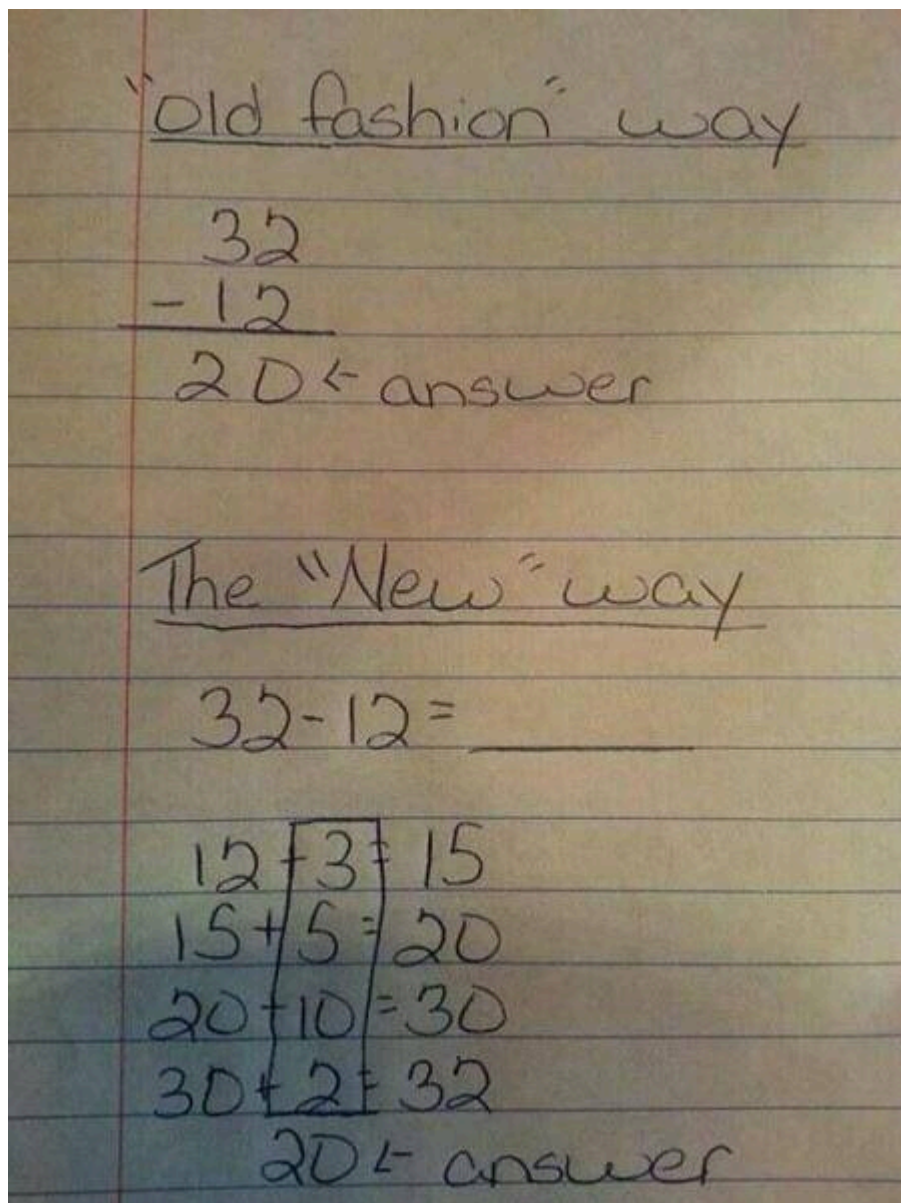 "old fashion" way
32
-12
20 ← answer
The "New" way
32-12= ______
12+3=15
15+5=20
20+10=30
30+2=32
20 ← answer